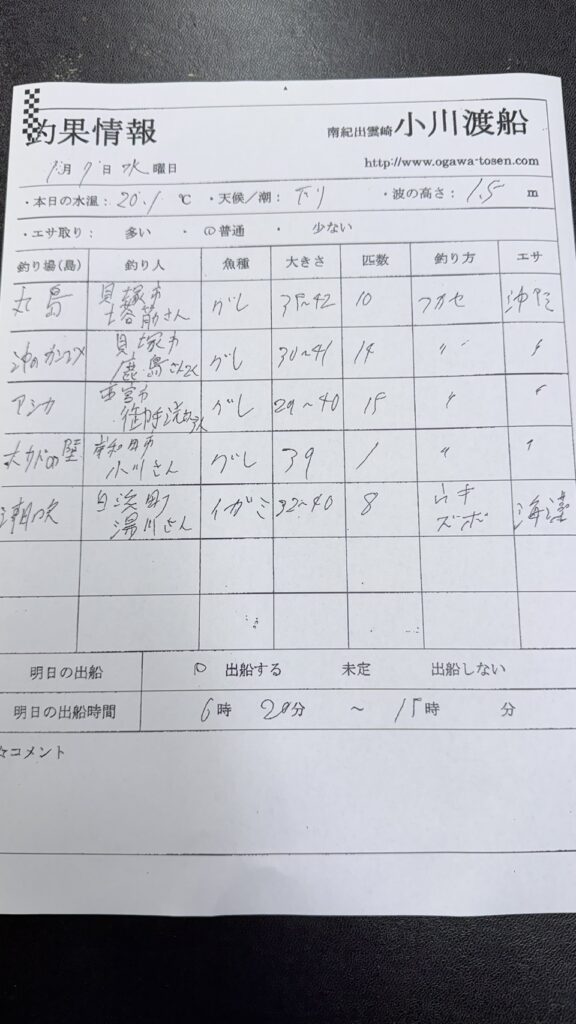 釣果情報
南紀出雲崎 小川渡船
月 日 水 曜日
http://www.ogawa-tosen.com
・本日の水温： 20.1 ℃ ・天候／潮： 下り ・波の高さ： 1.5 m
・エサ取り： 多い ・ ⊙普通 ・ 少ない
釣り場(島) 釣り人 魚種 大きさ 匹数 釣り方 エサ
丸島 貝塚市 塔筋さん グレ 35〜42 10 フカセ
沖の 貝塚市 鹿島さん グレ 30〜41 14 〃 〃
アシカ 西宮市 御手洗さん グレ 29〜40 15 〃 〃
の壁 岸和田市 小川さん グレ 39 1 〃 〃
潮吹 白浜町 湯川さん イガミ 32〜40 8 ウキ ズボ 海藻
明日の出船 出船する 未定 出船しない
明日の出船時間 6時 20分 〜 15時 分
☆コメント